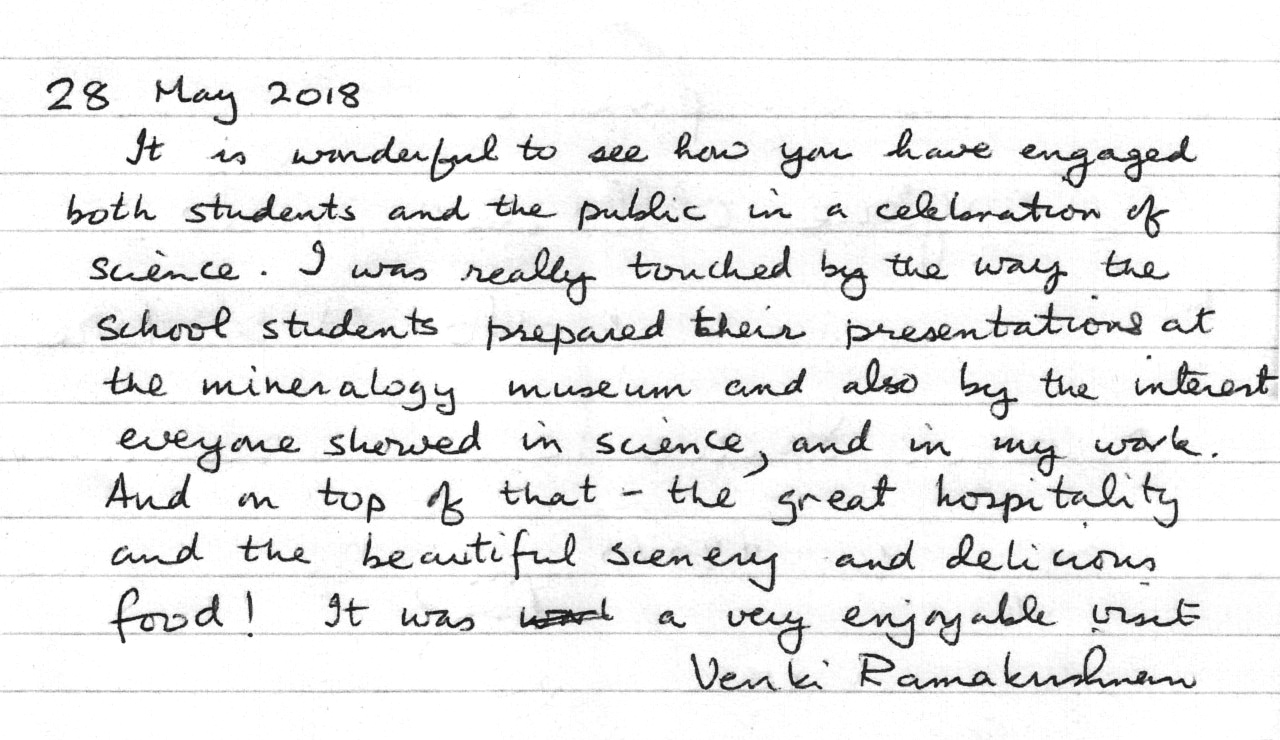 28 May 2018
It is wonderful to see how you have engaged
both students and the public in a celebration of
science. I was really touched by the way the
school students prepared their presentations at
the mineralogy museum and also by the interest
everyone showed in science, and in my work.
And on top of that - the great hospitality
and the beautiful scenery and delicious
food! It was a very enjoyable visit
Venki Ramakrishnan